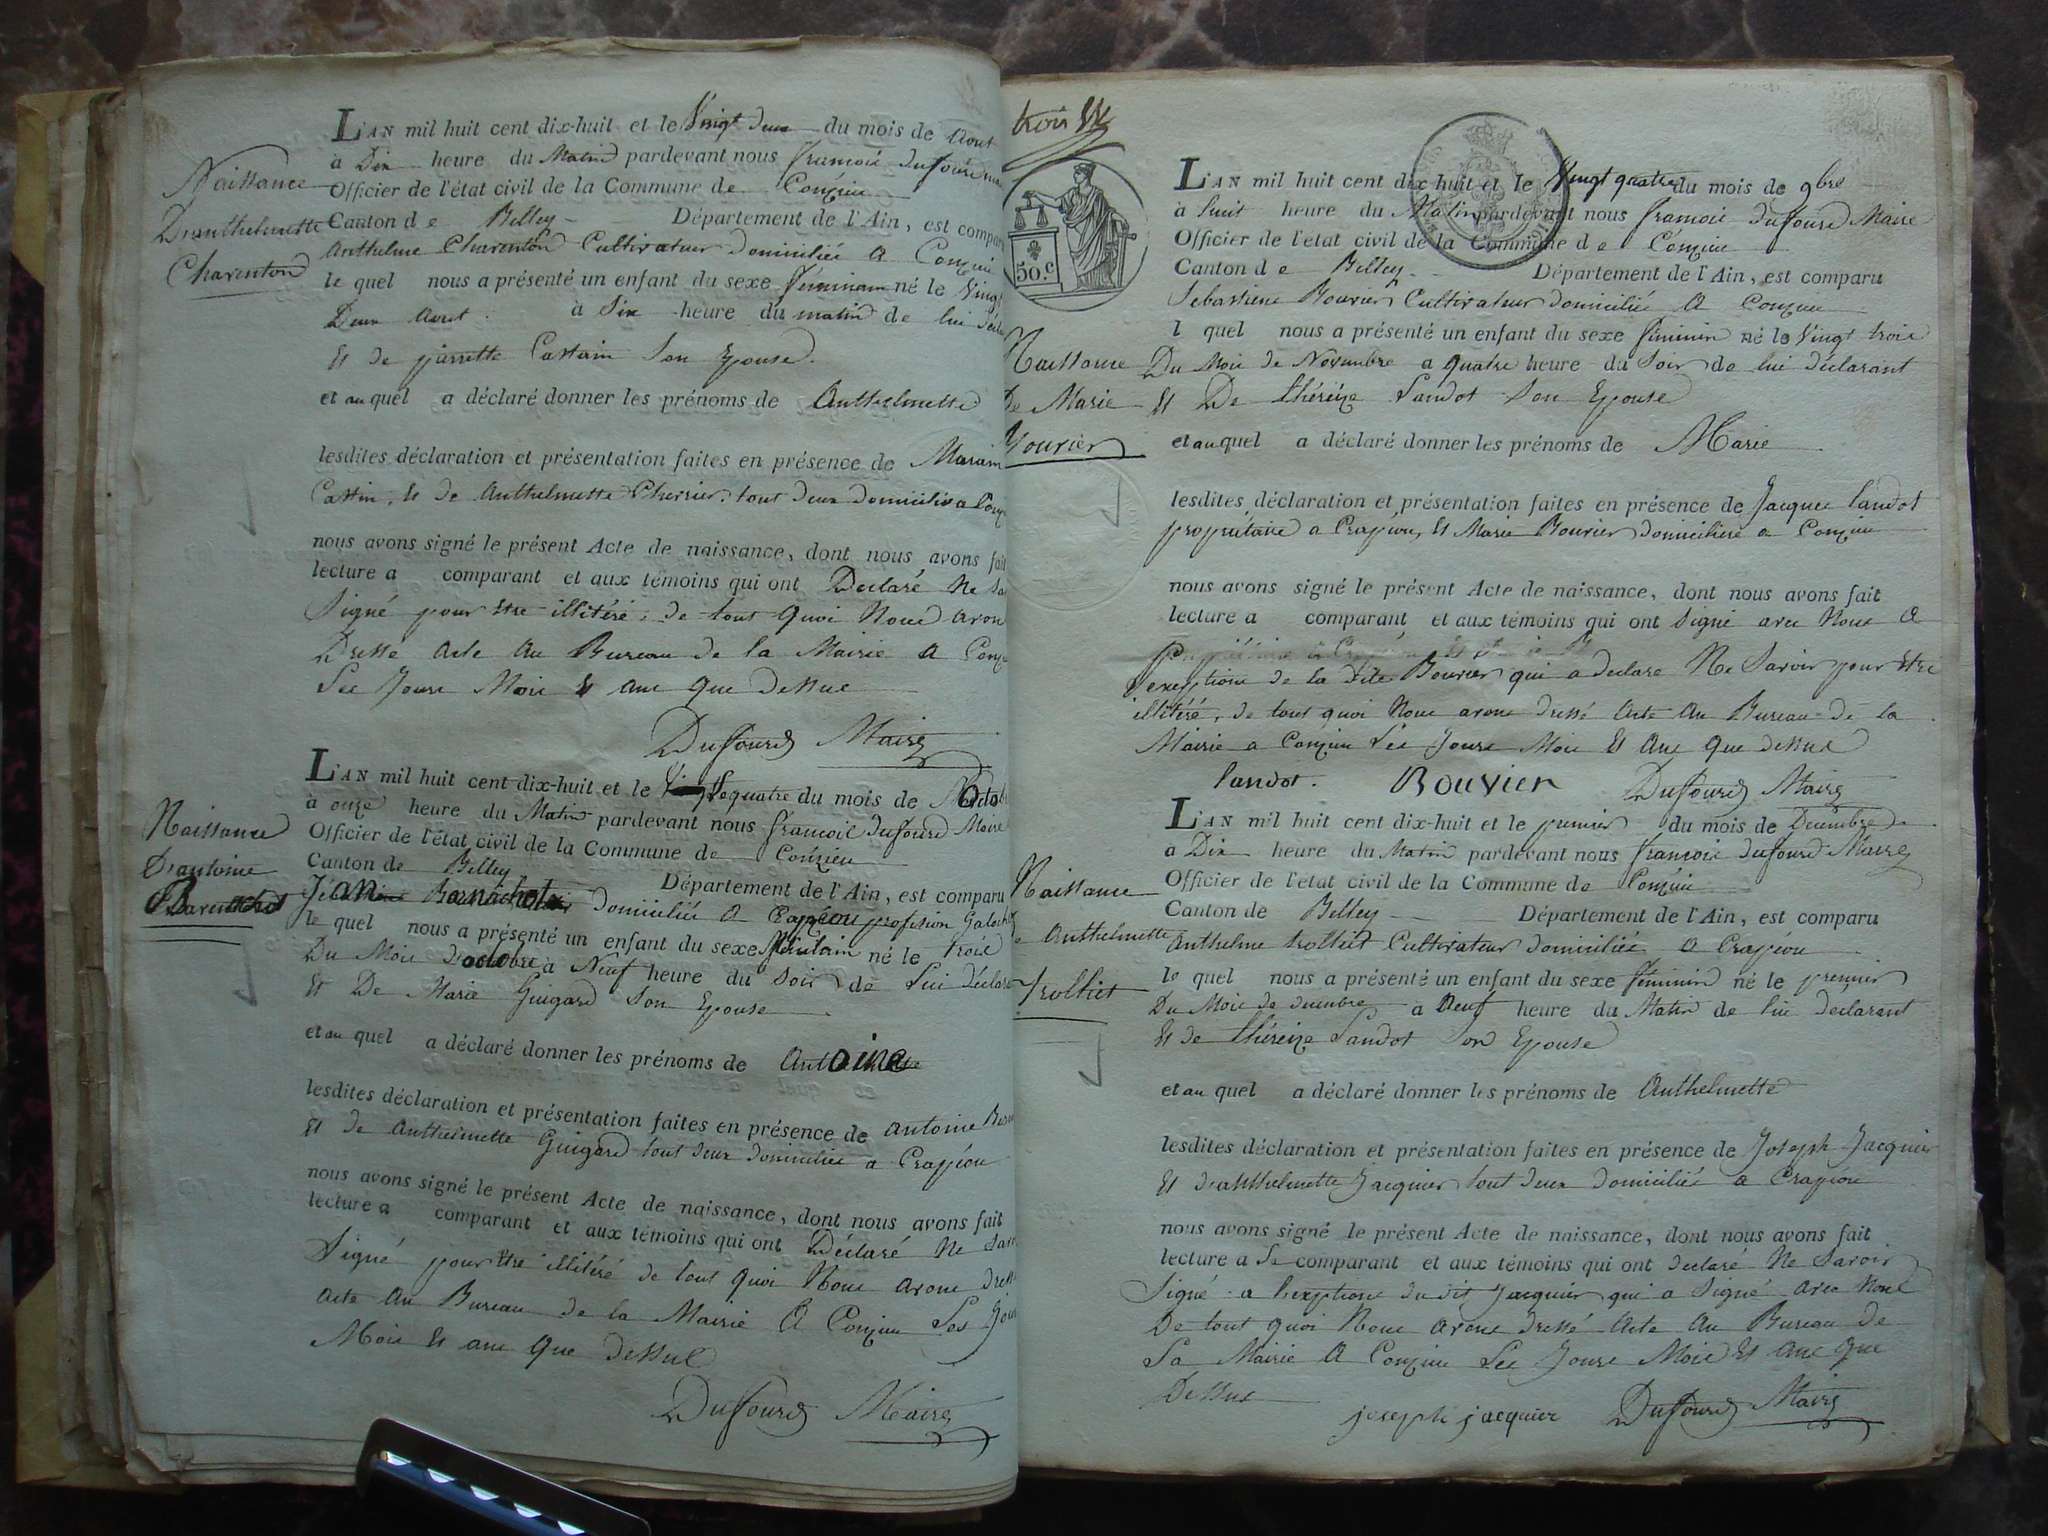 L'AN mil huit cent dix-huit et le Vingt deux du mois de Aout
à Dix heure du Matin pardevant nous francois dufourd
Officier de l'état civil de la Commune de Conzieu
Canton de Belley Département de l'Ain, est compar
Naissance
D'anthelmette
Charenton
Anthelme Charenton Cultivateur domiciliée A Conzieu
le quel nous a présenté un enfant du sexe féminain né le Vingt
Deux aout à Six heure du matin de lui
Et de pierrette Castain Son Epouse
et au quel a déclaré donner les prénoms de Anthelmette
lesdites déclaration et présentation faites en présence de
Et de Anthelmette tout deux domiciliés a
nous avons signé le présent Acte de naissance, dont nous avons fait
lecture a comparant et aux témoins qui ont Declaré Ne
Signé pour Etre illitéré, de tout Quoi Noue avon
Dresse Acte Au Bureau de la Mairie A
Les Joure Moie Et ane Que Dessue
Dufourd Maire
L'AN mil huit cent dix-huit et le du mois de
à onze heure du Matin pardevant nous francoie Dufourd Maire
Officier de l'état civil de la Commune de Conzieu
Canton de Belley Département de l'Ain, est comparu
Naissance
D'antoine
Jean domiciliée A Crapéou profession
le quel nous a présenté un enfant du sexe né le troie
Du Moie d'octobre à Neuf heure du Soir de Lui
Et De Marie Guigard Son Epouse
et au quel a déclaré donner les prénoms de Antoine
lesdites déclaration et présentation faites en présence de Antoine
Et de Anthelmette Guigard tout deux domiciliée a Crapéou
nous avons signé le présent Acte de naissance, dont nous avons fait
lecture a comparant et aux témoins qui ont Déclaré Ne
Signé pour Etre illitéré de tout Quoi Noue avone
Acte Au Bureau de la Mairie A Conzieu Les
Moie Et ane Que Dessue
Dufourd Maire
trois
50.c
L'AN mil huit cent dix-huit et le Vingt quatre du mois de 9bre
à huit heure du Matin pardevant nous francoie Dufourd Maire
Officier de l'état civil de la Commune de Conzieu
Canton de Belley Département de l'Ain, est comparu
Sebastiene Bouvier Cultivateur domiciliée A Conzieu
l quel nous a présenté un enfant du sexe féminin né le Vingt troie
Naissance
De Marie
Bouvier
Du Moie de Novembre a quatre heure du Soir de lui déclarant
Et De théréize Landot Son Epouse
et au quel a déclaré donner les prénoms de Marie
lesdites déclaration et présentation faites en présence de Jacquee landot
propriétaire a Crapéou, Et Marie Bouvier Domiciliere a Conzieu
nous avons signé le présent Acte de naissance, dont nous avons fait
lecture a comparant et aux témoins qui ont Signé avec Noue A
l'exeptione de la dite Bouvier qui a declare Ne Savoir pour Etre
illitéré, de tout quoi Noue avone dressé Acte Au Bureau de la
Mairie a Conzieu Lee Joure Moie Et Ane Que dessue
landot. Bouvier Dufourd Maire
L'AN mil huit cent dix-huit et le premier du mois de Decembre
à Dix heure du Matin pardevant nous francoie dufourd Maire
Officier de l'état civil de la Commune de Conzieu
Canton de Belley Département de l'Ain, est comparu
Naissance
Anthelmette
trolliet
Anthelme trolliet Cultivateur domiciliée A Crapéou
le quel nous a présenté un enfant du sexe féminin né le premier
Du Moie de decembre a Neuf heure du Matin de lui declarant
Et de théréize Landot Son Epouse
et au quel a déclaré donner les prénoms de Anthelmette
lesdites déclaration et présentation faites en présence de Joseph Jacquier
Et d'anthelmette Jacquier tout deux domiciliée a Crapéou
nous avons signé le présent Acte de naissance, dont nous avons fait
lecture a Le comparant et aux témoins qui ont declaré Ne Savoir
Signé a l'exeptione du dit Jacquier qui a Signé avec Noue
De tout quoi Noue avone dressé Acte Au Bureau de
La Mairie A Conzieu Lee Joure Moie Et ane Que
Dessue
joseph jacquier Dufourd Maire